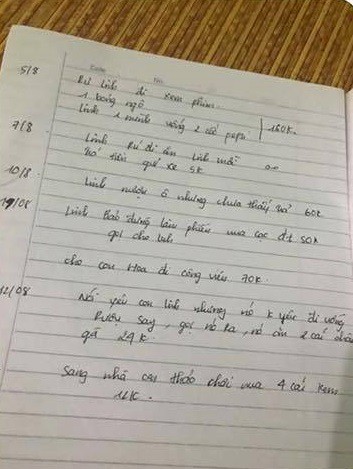 Date No.
5/8 Rủ Linh đi xem phim
1 bỏng ngô
Linh 1 mình uống 2 cốc pepsi | 160k.
7/8 Linh Rủ đi ăn Linh mời
Nó tiền gửi xe 5k
10/8 Linh mượn ô nhưng chưa thấy trả 60k
19/08 Linh Bảo đừng làm phiền mua cạc đt 50k
gọi cho Linh
cho con Hoa đi công viên 70k.
12/08 Nói yêu con Linh nhưng nó k yêu đi uống
Rượu say, gọi nó Ra, nó ăn 2 cái chân
gà 24k.
Sang nhà con thảo chơi mua 4 cái kem
12k.